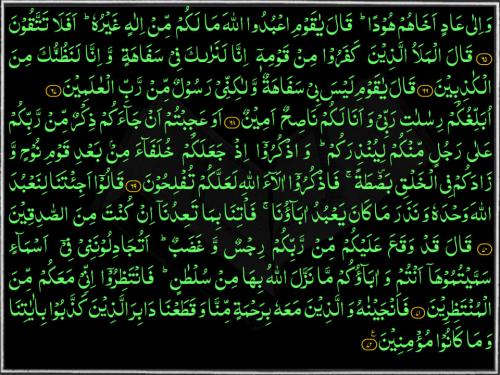 وَاِلٰى عَادٍ اَخَاهُمْ هُوْدًا ؕ قَالَ يٰقَوْمِ اعْبُدُوا اللّٰهَ مَا لَكُمْ مِّنْ اِلٰهٍ غَيْرُهٗ ؕ اَفَلَا تَتَّقُوْنَ
﴿٦٥﴾ قَالَ الْمَلَاُ الَّذِيْنَ كَفَرُوْا مِنْ قَوْمِهٖۤ اِنَّا لَنَرٰٮكَ فِىْ سَفَاهَةٍ وَّ اِنَّا لَنَظُنُّكَ مِنَ
الْكٰذِبِيْنَ ﴿٦٦﴾ قَالَ يٰقَوْمِ لَيْسَ بِىْ سَفَاهَةٌ وَّلٰكِنِّىْ رَسُوْلٌ مِّنْ رَّبِّ الْعٰلَمِيْنَ ﴿٦٧﴾
اُبَلِّغُكُمْ رِسٰلٰتِ رَبِّىْ وَاَنَا لَكُمْ نَاصِحٌ اَمِيْنٌ ﴿٦٨﴾ اَوَعَجِبْتُمْ اَنْ جَآءَكُمْ ذِكْرٌ مِّنْ رَّبِّكُمْ
عَلٰى رَجُلٍ مِّنْكُمْ لِيُنْذِرَكُمْ ؕ وَاذْكُرُوْۤا اِذْ جَعَلَكُمْ خُلَفَآءَ مِنْۢ بَعْدِ قَوْمِ نُوْحٍ وَّ
زَادَكُمْ فِى الْخَلْقِ بَصْۜطَةً ۚ فَاذْكُرُوْۤا اٰلَۤاءَ اللّٰهِ لَعَلَّكُمْ تُفْلِحُوْنَ ﴿٦٩﴾ قَالُوْۤا اَجِئْتَنَا لِنَعْبُدَ
اللّٰهَ وَحْدَهٗ وَنَذَرَ مَا كَانَ يَعْبُدُ اٰبَآؤُنَا ۚ فَاْتِنَا بِمَا تَعِدُنَاۤ اِنْ كُنْتَ مِنَ الصّٰدِقِيْنَ
﴿٧٠﴾ قَالَ قَدْ وَقَعَ عَلَيْكُمْ مِّنْ رَّبِّكُمْ رِجْسٌ وَّ غَضَبٌ ؕ اَتُجَادِلُوْنَنِىْ فِىْۤ اَسْمَآءٍ
سَمَّيْتُمُوْهَاۤ اَنْتُمْ وَ اٰبَآؤُكُمْ مَّا نَزَّلَ اللّٰهُ بِهَا مِنْ سُلْطٰنٍ ؕ فَانْتَظِرُوْۤا اِنِّىْ مَعَكُمْ مِّنَ
الْمُنْتَظِرِيْنَ ﴿٧١﴾ فَاَنْجَيْنٰهُ وَالَّذِيْنَ مَعَهٗ بِرَحْمَةٍ مِّنَّا وَقَطَعْنَا دَابِرَ الَّذِيْنَ كَذَّبُوْا بِاٰيٰتِنَا
وَمَا كَانُوْا مُؤْمِنِيْنَ ﴿٧٢﴾ ؏